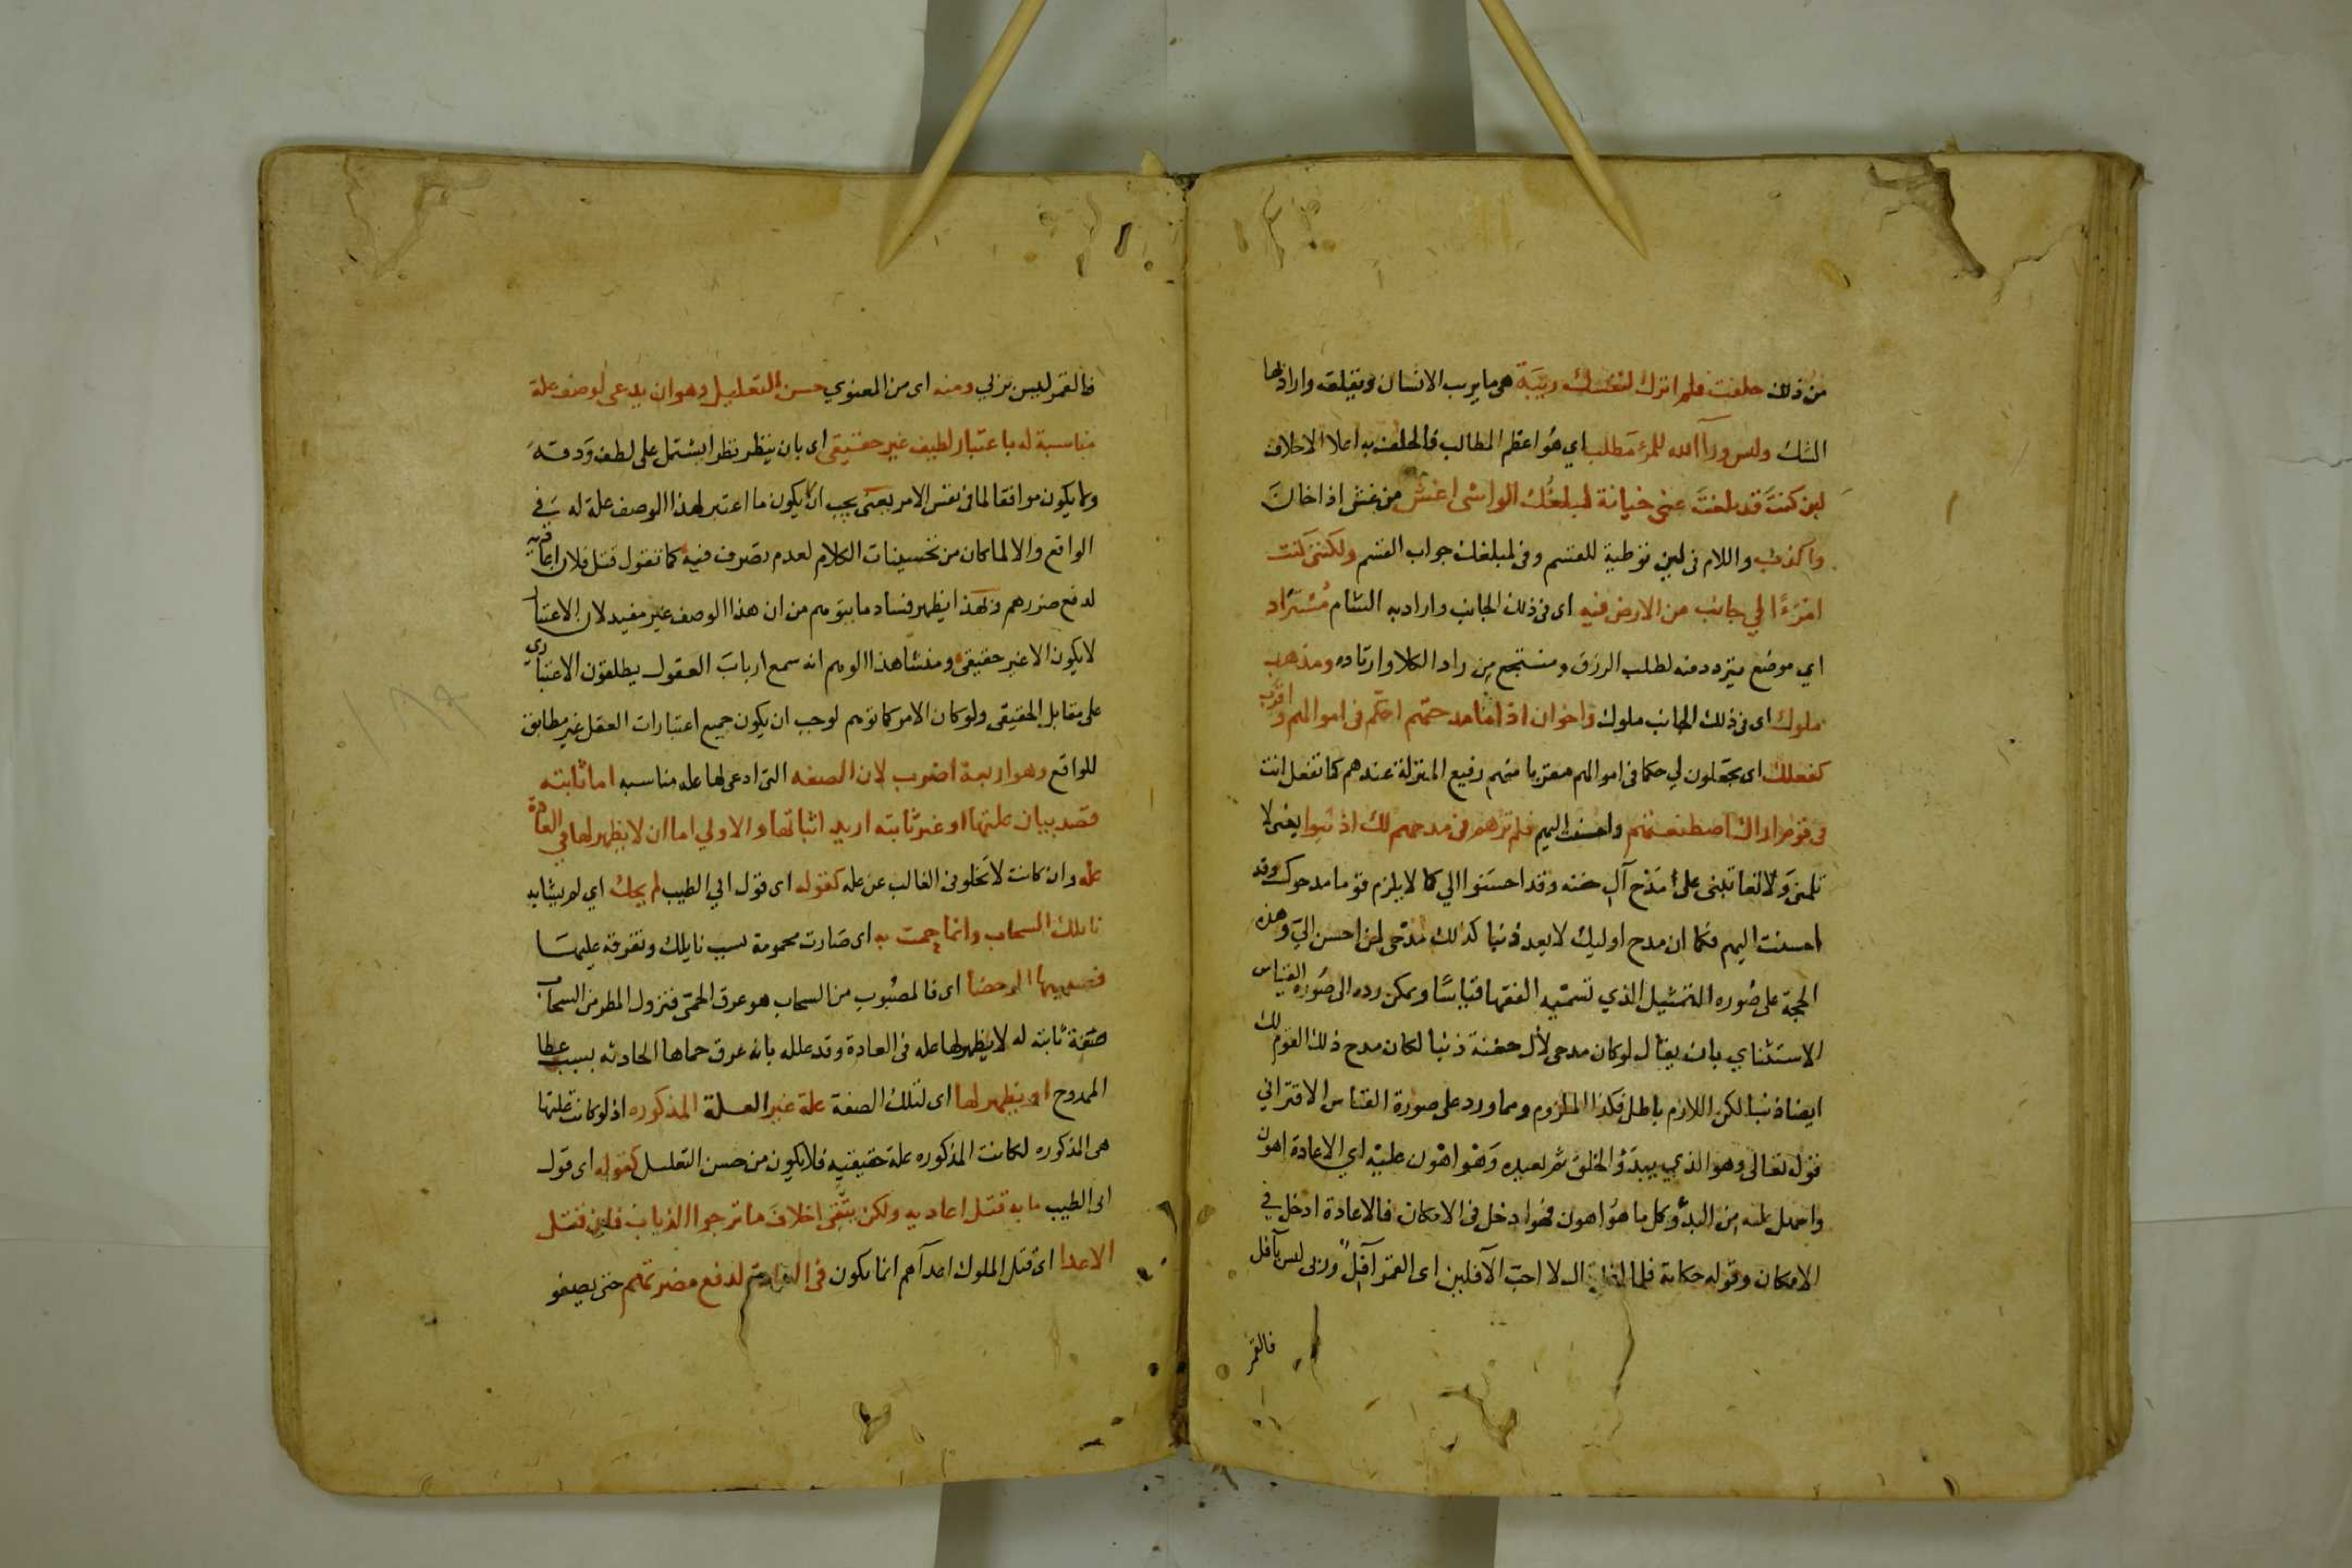 من ذلك حلفت فلم اترك لنفسك ريبة هى ما يريب الانسان ويقلقه واراد بها
الشك وليس ورآ الله للمرء مطلب اي هو اعظم المطالب فالحلف به اعلا الاحلاف
لين كنت قد بلغت عنى خيانة لمبلغك الواشى اغش من غش اذا خان
واكذب واللام فى لين توطية للقسم وفى لمبلغك جواب القسم ولكننى كنت
امرءا لي جانب من الارض فيه اى فى ذلك الجانب واراد به الشام مستراد
اي موضع يتردد فيه لطلب الرزق ومنتجع من راد الكلا وارتاده ومذهب
ملوك اى فى ذلك الجانب ملوك واخوان اذا ما مدحتهم احكم فى اموالهم واقرب
كفعلك اى يجعلون لي حكما فى اموالهم مقربا منهم رفيع المنزلة عندهم كما تفعل انت
فى قوم اراك اصطنعتهم واحسنت اليهم فلم ترهم فى مدحهم لك اذنبوا يعنى لا
تلمنى ولا تعاتبنى على مدح آل جفنه وقد احسنوا الي كما لا يلزم قوما مدحوك وقد
احسنت اليهم فكما ان مدح اوليك لا يعد ذنبا كذلك مدحى لمن احسن الي وهذه
الحجة على صوره التمثيل الذي تسميه الفقها قياسا ويمكن رده الى صوره القياس
الاستثناي بان يقال لو كان مدحى لآل جفنة ذنبا لكان مدح ذلك القوم لك
ايضا ذنبا لكن اللازم باطل فكذا الملزوم ومما ورد على صورة القياس الاقتراني
قوله تعالى وهو الذي يبدؤ الخلق ثم يعيده وهو اهون عليه اي الاعادة اهون
واسهل عليه من البدؤ وكل ما هو اهون فهو ادخل فى الامكان فالاعادة ادخل في
الامكان وقوله حكاية فلما افل قال لا احب الآفلين اى القمر آفل وربى ليس بآفل
فالقمر
فالقمر ليس بربي ومنه اى من المعنوي حسن التعليل وهو ان يدعى لوصف علة
مناسبة له باعتبار لطيف غير حقيقى اى بان ينظر نظرا يشتمل على لطف ودقة
ولا يكون موافقا لما فى نفس الامر يعنى يجب ان لا يكون ما اعتبر لهذا الوصف علة له في
الواقع والا لما كان من تحسينات الكلام لعدم تصرف فيه كما تقول قتل فلان اعاديه
لدفع ضررهم وبهذا يظهر فساد ما يتوهم من ان هذا الوصف غير مفيد لان الاعتبار
لا يكون الا غير حقيقى ومنشا هذا الوهم انه سمع ارباب العقول يطلقون الاعتباري
على مقابل الحقيقى ولو كان الامر كما توهم لوجب ان يكون جميع اعتبارات العقل غير مطابق
للواقع وهو اربعة اضرب لان الصفه التى ادعى لها عله مناسبه اما ثابته
قصد بيان علتها او غير ثابته اريد اثباتها والاولي اما ان لا يظهر لها في العادة
عله وان كانت لا تخلو فى الغالب عن عله كقوله اى قول ابي الطيب لم يحك اي لم يشابه
نايلك السحاب وانما حمت به اى صارت محمومة بسبب نايلك وتفوقه عليها
فصبيبها الرحضا اى فالمصبوب من السحاب هو عرق الحمى فنزول المطر من السحاب
صفة ثابته له لا يظهر لها عله فى العادة وقد علله بانه عرق حماها الحادثه بسبب عطا
الممدوح او يظهر لها اى لتلك الصفة علة غير العلة المذكوره اذ لو كانت علتها
هى المذكوره لكانت المذكوره علة حقيقيه فلا يكون من حسن التعليل كقوله اى قول
ابى الطيب ما به قتل اعاديه ولكن يتقى اخلاف ما ترجوا الذياب فان قتل
الاعدا اى قتل الملوك اعدآهم انما يكون فى العادة لدفع مضرتهم حتى يصفو